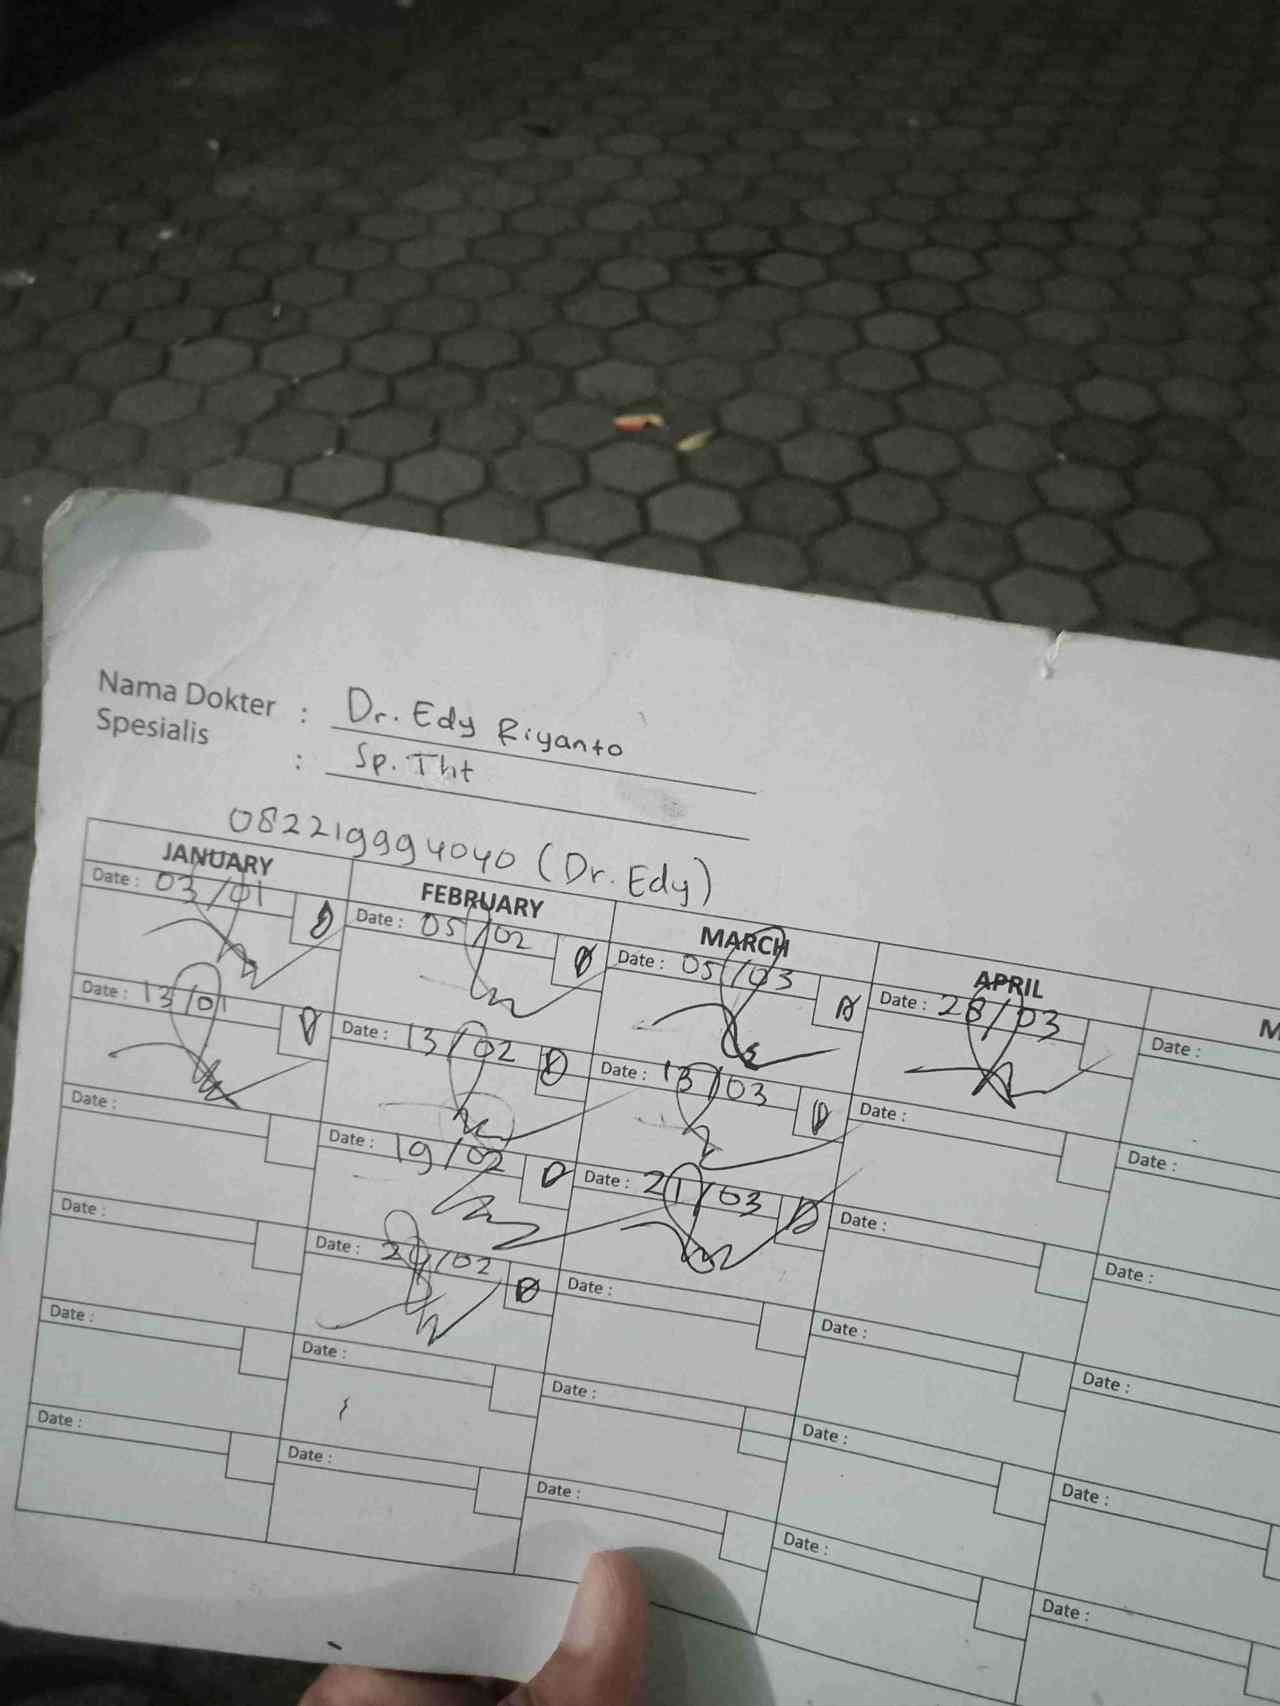 Nama Dokter : Dr. Edy Riyanto
Spesialis : Sp. Tht
082219994040 (Dr. Edy)
JANUARY FEBRUARY MARCH APRIL
Date : 03/01 Date : 05/02 Date : 05/03 Date : 28/03 Date :
Date : 13/01 Date : 13/02 Date : 13/03 Date : Date :
Date : Date : 19/02 Date : 21/03 Date : Date :
Date : Date : 24/02 Date : Date : Date :
Date : Date : Date : Date : Date :
Date : Date : Date : Date : Date :